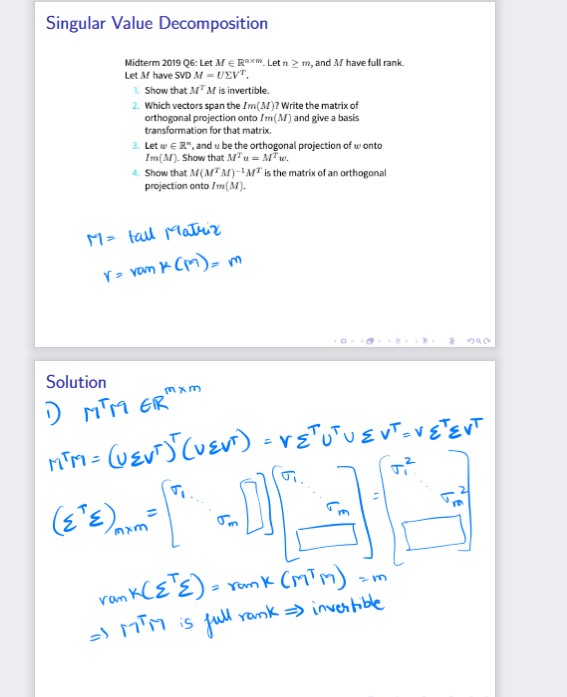 Singular Value Decomposition
Midterm 2019 Q6: Let M ∈ ℝⁿˣᵐ. Let n ≥ m, and M have full rank.
Let M have SVD M = UΣVᵀ.
1. Show that MᵀM is invertible.
2. Which vectors span the Im(M)? Write the matrix of
orthogonal projection onto Im(M) and give a basis
transformation for that matrix.
3. Let w ∈ ℝⁿ, and u be the orthogonal projection of w onto
Im(M). Show that Mᵀu = Mᵀw.
4. Show that M(MᵀM)⁻¹Mᵀ is the matrix of an orthogonal
projection onto Im(M).
M = tall Matrix
r = rank(M) = m
Solution
1) MᵀM ∈ ℝᵐˣᵐ
MᵀM = (UΣVᵀ)ᵀ(UΣVᵀ) = VΣᵀUᵀUΣVᵀ = VΣᵀΣVᵀ
(ΣᵀΣ)ₘₓₘ = [σ₁ ⋱ σₘ ▯] [σ₁ ⋱ σₘ ▯] = [σ₁² ⋱ σₘ² ▯]
rank(ΣᵀΣ) = rank(MᵀM) = m
⇒ MᵀM is full rank ⇒ invertible